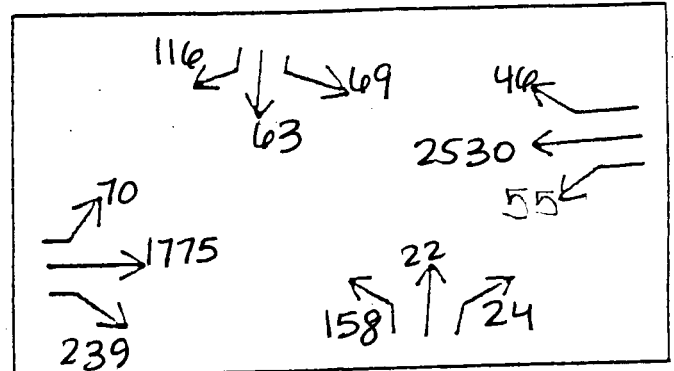 116
69
63
46
2530
55
70
1775
239
22
158
24